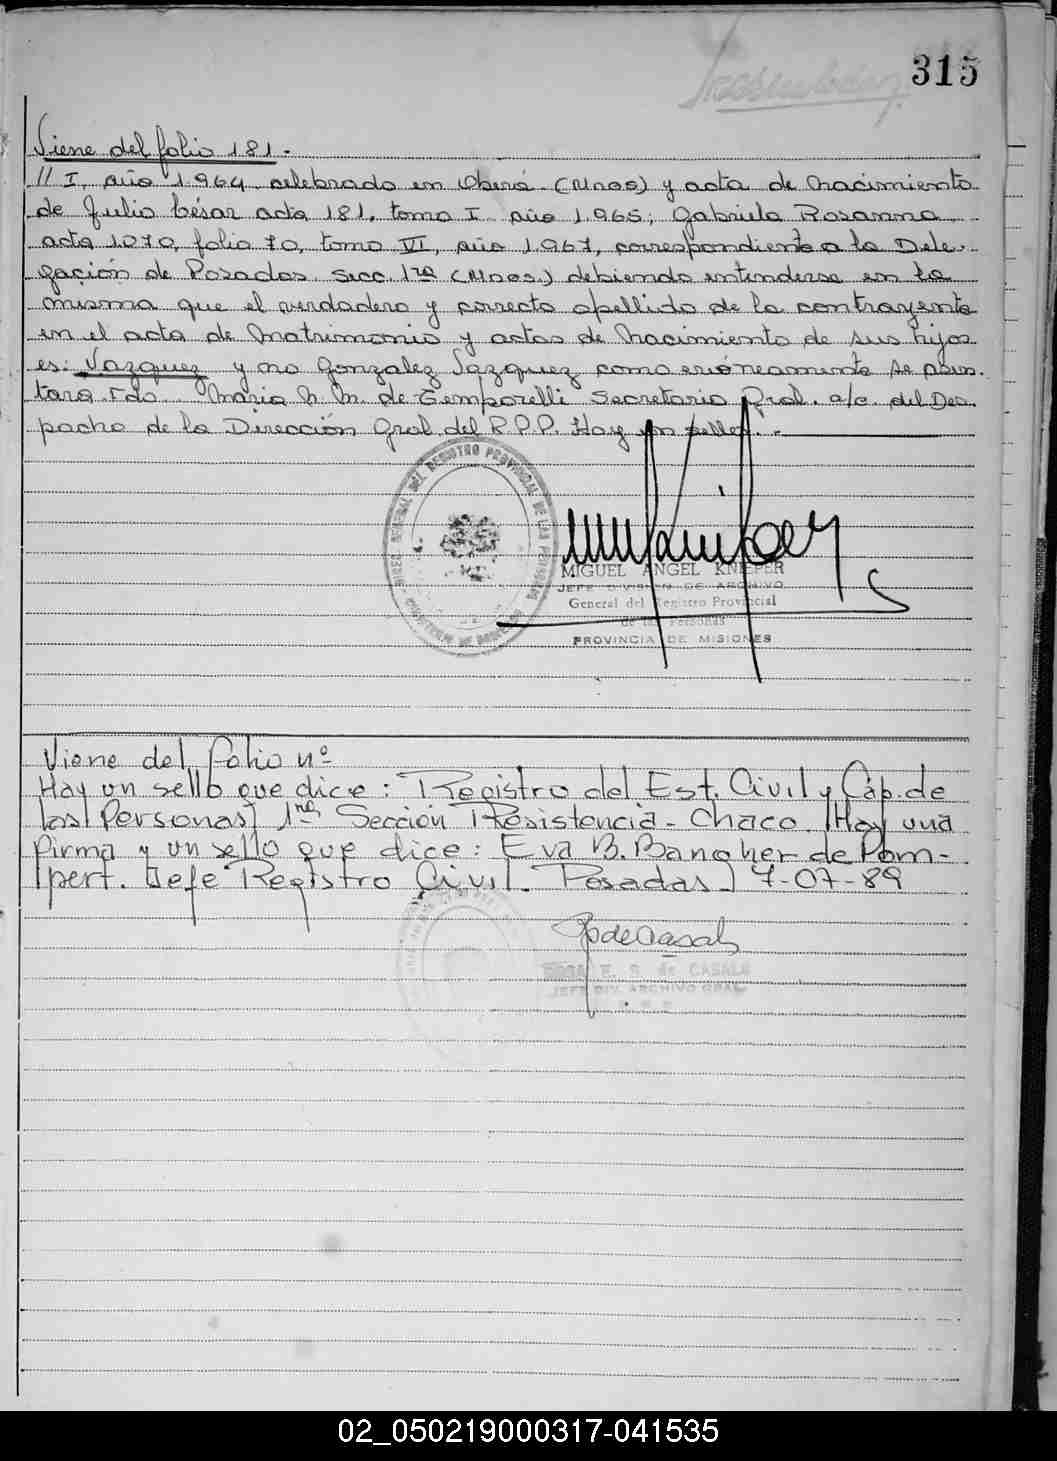 315
Viene del folio 181.-
// I, año 1.964 celebrado en Oberá (Mnes) y acta de Nacimiento
de Julio César acta 181, tomo I año 1.965; Gabriela Rosanna
acta 1070, folio 70, tomo VI, año 1.967, correspondiente a la Dele-
gación de Posadas Secc. 1ra (Mnes.) debiendo entenderse en la
misma que el verdadero y correcto apellido de la contrayente
en el acta de Matrimonio y actas de Nacimiento de sus hijos
es: Vazquez y no Gonzalez Vazquez como erróneamente se asen-
tara. Fdo. Maria N. M. de Temporelli Secretario Gral. a/c. del Des-
pacho de la Dirección Gral. del R.P.P. Hay un sello.-
DIREC. GENERAL DEL REGISTRO PROVINCIAL DE LAS PERSONAS
MIGUEL ANGEL KNIEPER
JEFE DIVISION DE ARCHIVO
General del Registro Provincial
de las Personas
PROVINCIA DE MISIONES
Viene del folio nº
Hay un sello que dice: Registro del Est. Civil y Cap. de
las Personas] 1ra Sección Resistencia - Chaco. [Hay una
firma y un sello que dice: Eva B. Bangher de Pom-
pert. Jefe Registro Civil. Posadas] 7-07-89
R de Casals
ROSA E. R. de CASALS
JEFE DIV. ARCHIVO GRAL
02_050219000317-041535